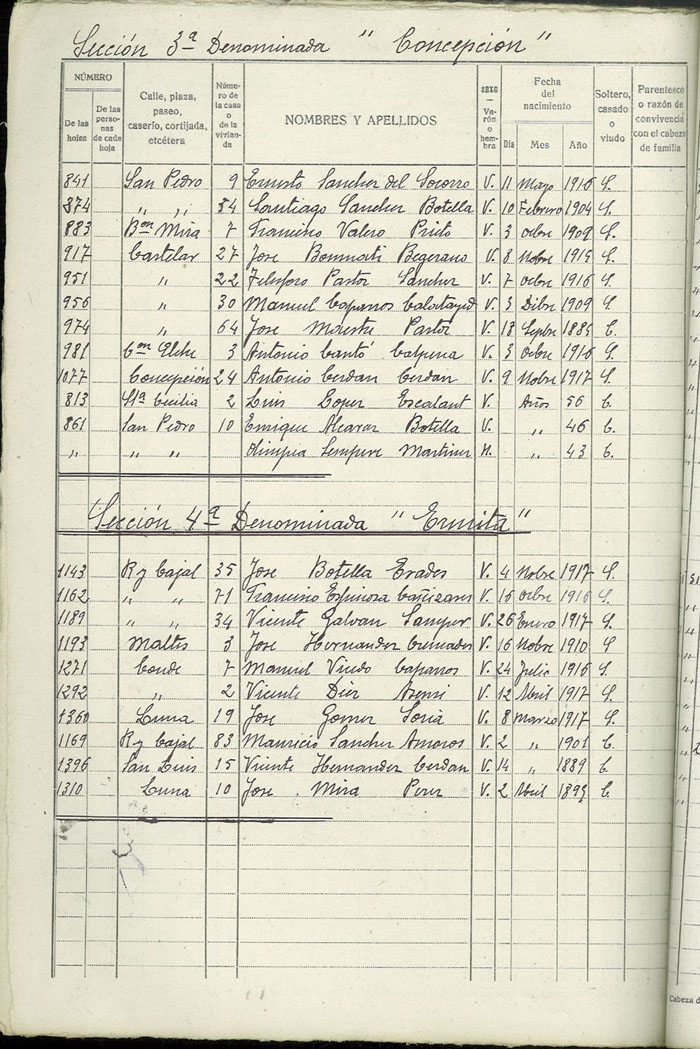 Sección 3ª Denominada " Concepción "
NÚMERO
De las hojas
De las personas de cada hoja
Calle, plaza, paseo, caserío, cortijada, etcétera
Número de la casa o de la vivienda
NOMBRES Y APELLIDOS
SEXO — Varón o hembra
Fecha del nacimiento
Día Mes Año
Soltero, casado o viudo
Parentesco o razón de convivencia con el cabeza de familia
841 San Pedro 9 Ernesto Sanchez del Socorro V. 11 Mayo 1916 S.
874 " " 54 Santiago Sanchez Botella V. 10 Febrero 1904 S.
883 Bon Mira 7 Francisco Valero Prieto V. 3 Octbre 1909 S.
917 Castelar 27 Jose Bonmati Begerano V. 8 Nobre 1915 S.
951 " 22 Telesforo Pastor Sanchez V. 7 Octbre 1916 S.
956 " 30 Manuel Caparros Calatayud V. 3 Dibre 1909 S.
974 " 64 Jose Maestre Pastor V. 18 Septbre 1885 C.
981 Con Elche 3 Antonio Cantó Calpena V. 3 Octbre 1916 S.
1077 Concepción 24 Antonio Cerdan Cerdan V. 9 Nobre 1917 S.
813 Sta Cecilia 2 Luis Lopez Escalant V. Años 56 C.
861 San Pedro 10 Enrique Alcaraz Botella V. " 46 C.
" " " Olimpia Sempere Martinez H. " 43 C.
Sección 4ª Denominada " Ermita "
1143 R y Cajal 35 Jose Botella Erades V. 4 Nobre 1917 S.
1162 " " 71 Francisco Espinosa Cañizares V. 16 Octbre 1916 S.
1189 " " 34 Vicente Galvan Samper V. 26 Enero 1917 S.
1193 Maltés 3 Jose Hernandez Cremades V. 16 Nobre 1910 S
1271 Conde 7 Manuel Viudo Caparros V. 24 Julio 1916 S.
1292 " 2 Vicente Diez Asensi V. 12 Abril 1917 S.
1360 Luna 19 Jose Gomez Soria V. 8 Marzo 1917 S.
1169 R y Cajal 83 Mauricio Sanchez Amoros V. 2 " 1901 C.
1396 San Luis 15 Vicente Hernandez Cerdan V. 14 " 1889 C.
1310 Luna 10 Jose Mira Perez V. 2 Abril 1895 C.
Cabeza d